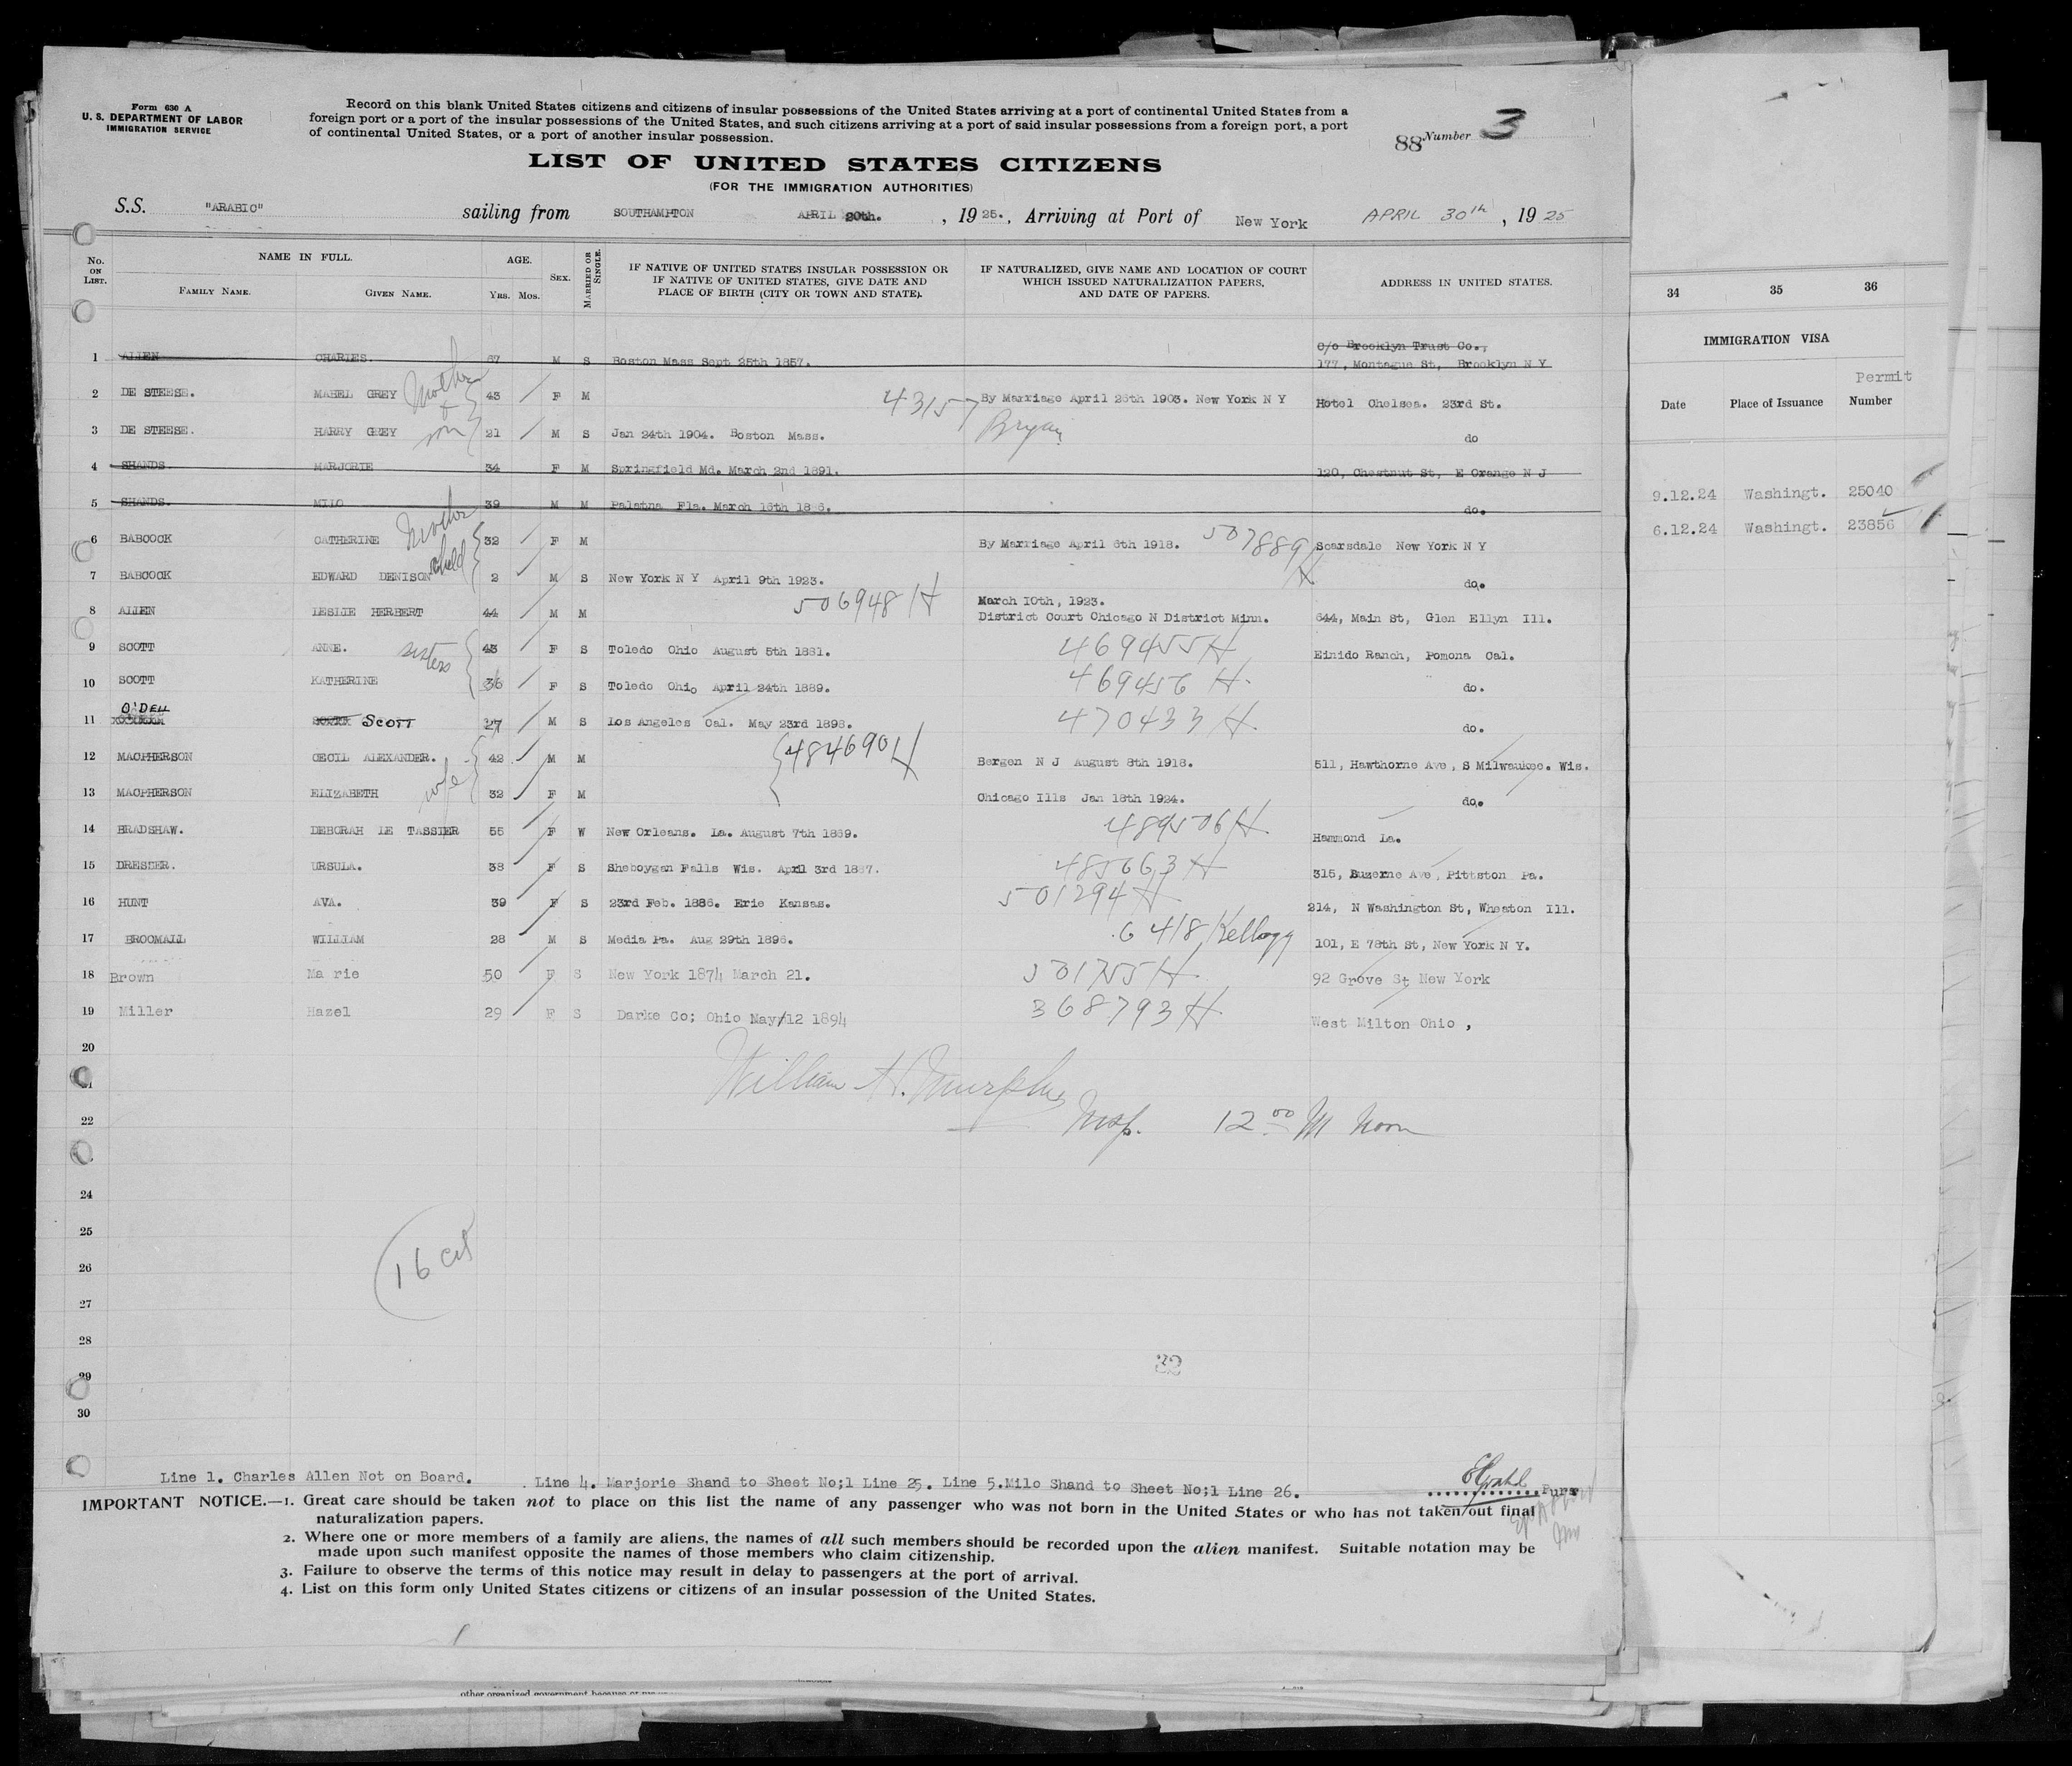 Form 630 A
U. S. DEPARTMENT OF LABOR
IMMIGRATION SERVICE
Record on this blank United States citizens and citizens of insular possessions of the United States arriving at a port of continental United States from a
foreign port or a port of the insular possessions of the United States, and such citizens arriving at a port of said insular possessions from a foreign port, a port
of continental United States, or a port of another insular possession.
88 Number 3
LIST OF UNITED STATES CITIZENS
(FOR THE IMMIGRATION AUTHORITIES)
S.S. "ARABIC" sailing from SOUTHAMPTON APRIL 20th. , 1925., Arriving at Port of New York APRIL 30th, 1925
No. ON LIST. NAME IN FULL. FAMILY NAME. GIVEN NAME. AGE. YRS. MOS. SEX. MARRIED OR SINGLE. IF NATIVE OF UNITED STATES INSULAR POSSESSION OR IF NATIVE OF UNITED STATES, GIVE DATE AND PLACE OF BIRTH (CITY OR TOWN AND STATE). IF NATURALIZED, GIVE NAME AND LOCATION OF COURT WHICH ISSUED NATURALIZATION PAPERS, AND DATE OF PAPERS. ADDRESS IN UNITED STATES.
34 35 36
IMMIGRATION VISA
Date Place of Issuance Permit Number
9.12.24 Washingt. 25040
6.12.24 Washingt. 23856
c/o Brooklyn Trust Co.,
1 ALLEN CHARLES. 67 M S Boston Mass Sept 25th 1857. 177, Montague St, Brooklyn N Y
2 DE STEESE. MABEL GREY Mother & 43 F M 43157 By Marriage April 25th 1903. New York N Y Hotel Chelsea. 23rd St.
3 DE STEESE. HARRY GREY son 21 M S Jan 24th 1904. Boston Mass. Bryan do
4 SHANDS. MARJORIE 34 F M Springfield Md. March 2nd 1891. 120, Chestnut St, E Orange N J
5 SHANDS. MILO 39 M M Palatna Fla. March 16th 1886. do.
6 BABCOCK CATHERINE Mother 32 F M By Marriage April 6th 1918. 507889 H Scarsdale New York N Y
7 BABCOCK EDWARD DENISON child 2 M S New York N Y April 9th 1923. do.
8 ALLEN LESLIE HERBERT 44 M M 506948 H March 10th, 1923.
District Court Chicago N District Minn. 644, Main St, Glen Ellyn Ill.
9 SCOTT ANNE. sisters 43 F S Toledo Ohio August 5th 1881. 469455 H Einido Ranch, Pomona Cal.
10 SCOTT KATHERINE 36 F S Toledo Ohio April 24th 1889. 469456 H. do.
11 O'DELL SCOTT 27 M S Los Angeles Cal. May 23rd 1898. 470433 H. do.
12 MACPHERSON CECIL ALEXANDER. 42 M M 484690 H Bergen N J August 8th 1918. 511, Hawthorne Ave, S Milwaukee. Wis.
13 MACPHERSON ELIZABETH wife 32 F M Chicago Ills Jan 18th 1924. do.
14 BRADSHAW. DEBORAH LE TASSIER 55 F W New Orleans. La. August 7th 1869. 489506 H. Hammond La.
15 DRESSER. URSULA. 38 F S Sheboygan Falls Wis. April 3rd 1887. 485663 H 315, Luzerne Ave, Pittston Pa.
16 HUNT AVA. 39 F S 23rd Feb. 1886. Erie Kansas. 501294 H 214, N Washington St, Wheaton Ill.
17 BROOMALL WILLIAM 28 M S Media Pa. Aug 29th 1896. 6418 Kellogg 101, E 78th St, New York N Y.
18 Brown Marie 50 F S New York 1874 March 21. 501755 H. 92 Grove St New York
19 Miller Hazel 29 F S Darke Co; Ohio May/12 1894 368793 H West Milton Ohio ,
20
21
William H. Murphy
22 Insp. 12 00 M Noon
24
25
16 cit
26
27
28
32
29
30
Line 1. Charles Allen Not on Board. Line 4. Marjorie Shand to Sheet No;1 Line 25. Line 5. Milo Shand to Sheet No;1 Line 26.
Purs
IMPORTANT NOTICE.—1. Great care should be taken not to place on this list the name of any passenger who was not born in the United States or who has not taken out final
naturalization papers.
2. Where one or more members of a family are aliens, the names of all such members should be recorded upon the alien manifest. Suitable notation may be
made upon such manifest opposite the names of those members who claim citizenship.
3. Failure to observe the terms of this notice may result in delay to passengers at the port of arrival.
4. List on this form only United States citizens or citizens of an insular possession of the United States.